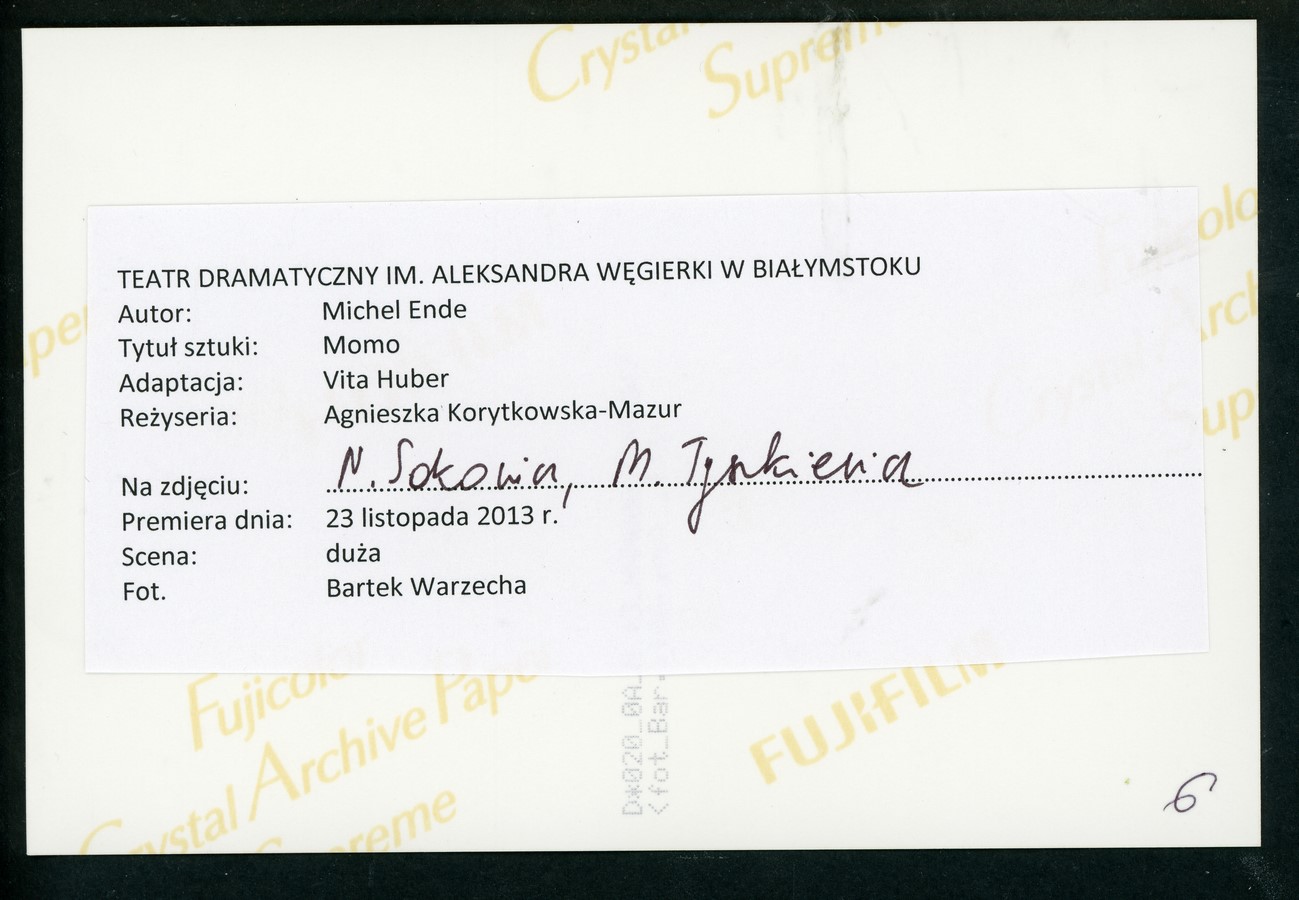 Crystal
Supreme
TEATR DRAMATYCZNY IM. ALEKSANDRA WĘGIERKI W BIAŁYMSTOKU
Autor: Michel Ende
Tytuł sztuki: Momo
Adaptacja: Vita Huber
Reżyseria: Agnieszka Korytkowska-Mazur
Na zdjęciu: N. Sokovia, M. Tyszkievia
Premiera dnia: 23 listopada 2013 r.
Scena: duża
Fot. Bartek Warzecha
Fujicolor
Crystal Archive Paper
Supreme
FUJIFILM
D*020_0A_
<fot_Bar.
6